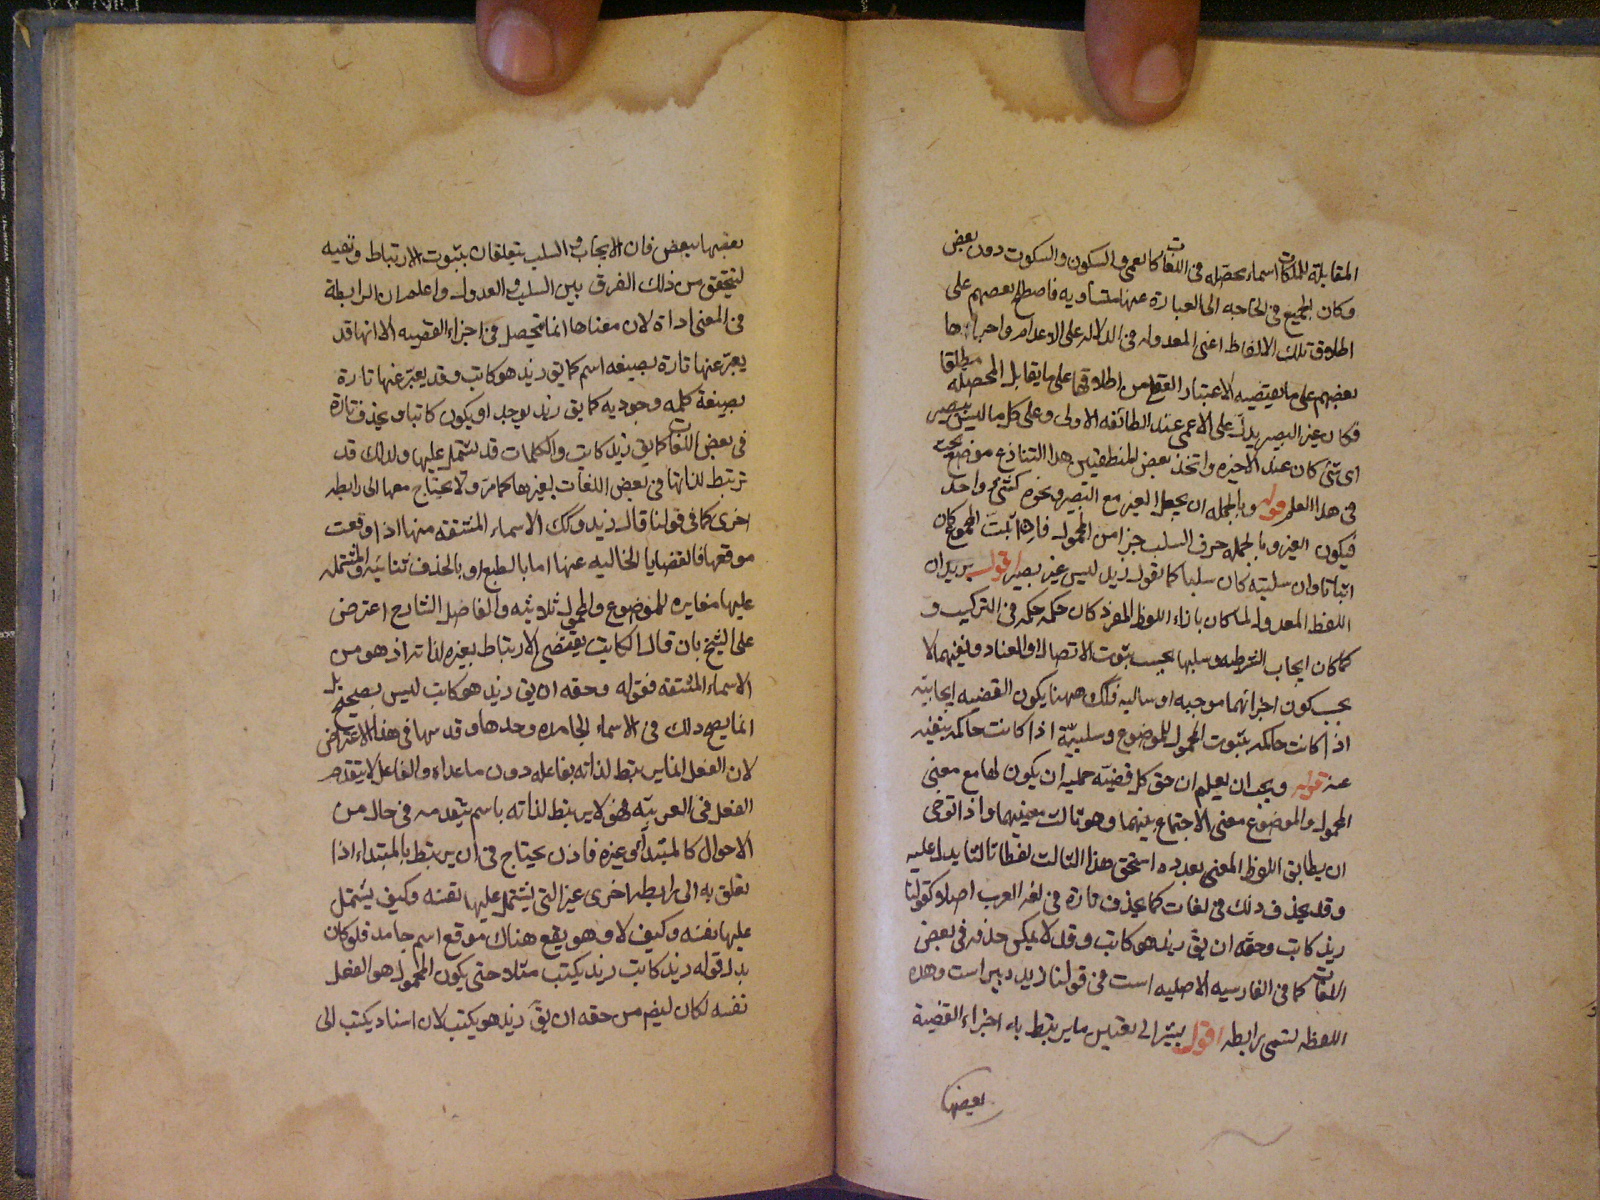 المقابلة للملكات اسماء محصله فى اللغات كالعمى والسكون والسكوت دون بعض
وكان الجميع فى الحاجه الى العبارة عنها متساويه فاصطلح بعضهم على
اطلاق تلك الالفاظ اعنى المعدوله فى الدلاله على الاعدام واجراها
بعضهم على ما يقتضيه الاعتبار العقلى من اطلاقها على ما يقابل المحصله مطلقا
فكان غير البصير يدل على الاعمى عند الطائفه الاولى وعلى كل ما ليس ببصير
اى شى كان عند الاخيره واتخذ بعض المنطقيين هذا التنازع موضع بحث
فى هذا العلم قوله وبالجمله ان يجعل الغير مع البصير ونحوه كشئ واحد
فيكون الغير وبالجمله حرف السلب جزءا من المحمول فان اثبت المجموع كان
اثباتا وان سلبته كان سلبا كما تقول زيد ليس غير بصير اقول يريد ان
اللفظ المعدول لما كان بازاء اللفظ المفرد كان حكمه حكمه فى التركيب و
كما كان ايجاب الشرطيه وسلبها بحسب ثبوت الاتصال او العناد ونفيهما لا
بحسب كون اجزائهما موجبه او سالبه فكك ههنا يكون القضيه ايجابيه
اذا كانت حاكمه بثبوت المحمول للموضوع وسلبيّة اذا كانت حاكمه بنفيه
عنه قوله ويجب ان يعلم ان حق كل قضيّه حمليه ان يكون لها مع معنى
المحمول والموضوع معنى الاجتماع بينهما وهو ثالث معنييهما واذا توخى
ان يطابق اللفظ المعنى بعدده استحق هذا الثالث لفظا ثالثا يدل عليه
وقد يحذف ذلك فى لغات كما يحذف تارة فى لغه العرب اصلا كقولنا
زيد كاتب وحقه ان يق زيد هو كاتب وقد لا يمكن حذفه فى بعض
اللغات كما فى الفارسيه الاصليه است فى قولنا زيد دبير است وهذه
اللفظه تسمى رابطه اقول يشير الى تعيين ما يرتبط به اجزاء القضية
بعضها
بعضها ببعض فان الايجاب والسلب يتعلقان بثبوت الارتباط ونفيه
ليتحقق من ذلك الفرق بين السلب والعدول واعلم ان الرابطة
فى المعنى اداة لان معناها انما يتحصل فى اجزاء القضيه الا انها قد
يعبّر عنها تارة بصيغه اسم كما يق زيد هو كاتب وقد يعبّر عنها تارة
بصيغة كلمه وجوديه كما يق زيد يوجد او يكون كاتبا ويحذف تارة
فى بعض اللغات كما يق زيد كاتب والكلمات قد تشتمل عليها ولذلك قد
ترتبط لذاتها فى بعض اللغات بغيرها كما مرّ ولا يحتاج معها الى رابطه
اخرى كما فى قولنا قال زيد وكك الاسماء المشتقه منها اذا وقعت
موقعها فالقضايا الخاليه عنها اما بالطبع او بالحذف ثنائيه والمشتمله
عليها مغايره للموضوع والمحمول ثلاثيه والفاضل الشارح اعترض
على الشيخ بان قال الكاتب يقتضى الارتباط بغيره لذاته اذ هو من
الاسماء المشتقه فقوله وحقه ان يق زيد هو كاتب ليس بصحيح بل
انما يصح ذلك فى الاسماء الجامده وحدها وقد سها فى هذا الاعتراض
لان الفعل انما يرتبط لذاته بفاعله دون ما عداه والفاعل لا يتقدم
الفعل فى العربيّه فهو لا يرتبط لذاته باسم يتقدمه فى حال من
الاحوال كالمبتدأ وغيره فاذن يحتاج فى ان يرتبط بالمبتداء اذا
تعلق به الى رابطه اخرى غير التى يشتمل عليها نفسه وكيف يشتمل
عليها نفسه وكيف لا وهو يقع هناك موقع اسم جامد فلو كان
بدل قوله زيد كاتب زيد يكتب مثلا حتى يكون المحمول هو الفعل
نفسه لكان ايضم من حقه ان يقَ زيد هو يكتب لان اسناد يكتب الى